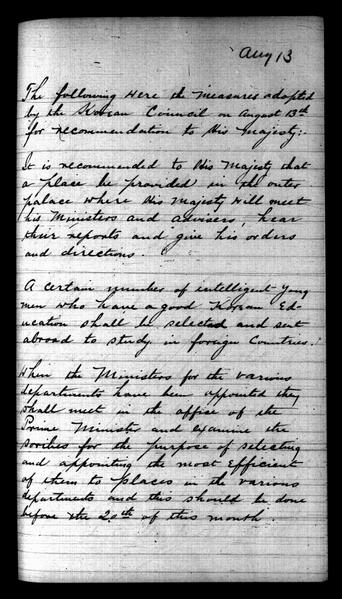 Aug 13
The following were the measures adopted
by the Korean Council on August 13th
for recommendation to His Majesty:-
It is recommended to His Majesty that
a place be provided in the outer
palace where His Majesty will meet
his Ministers and advisers, hear
their reports and give his orders
and directions.
A certain number of intelligent young
men who have a good Korean Ed-
ucation shall be selected and sent
abroad to study in foreign Countries.
When the Ministers for the various
departments have been appointed they
shall meet in the office of the
Prime Minister and examine the
scribes for the purpose of selecting
and appointing the most Efficient
of them to places in the various
departments and this should be done
before the 20th of this month.